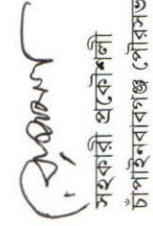 সহকারী প্রকৌশলী
চাঁপাইনবাবগঞ্জ পৌরসভ